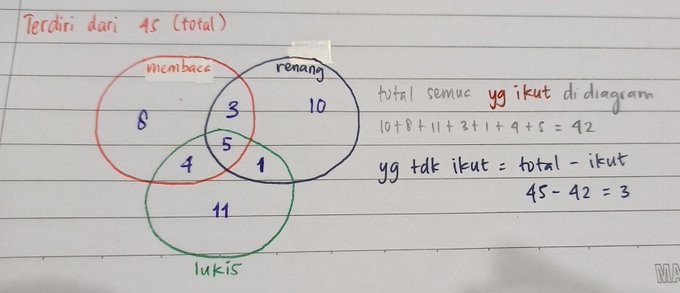 Terdiri dari 45 (total)
membaca
renang
8
3
10
5
4
1
11
lukis
total semua yg ikut di diagram
10+8+11+3+1+4+5 = 42
yg tdk ikut = total - ikut
45 - 42 = 3
MA